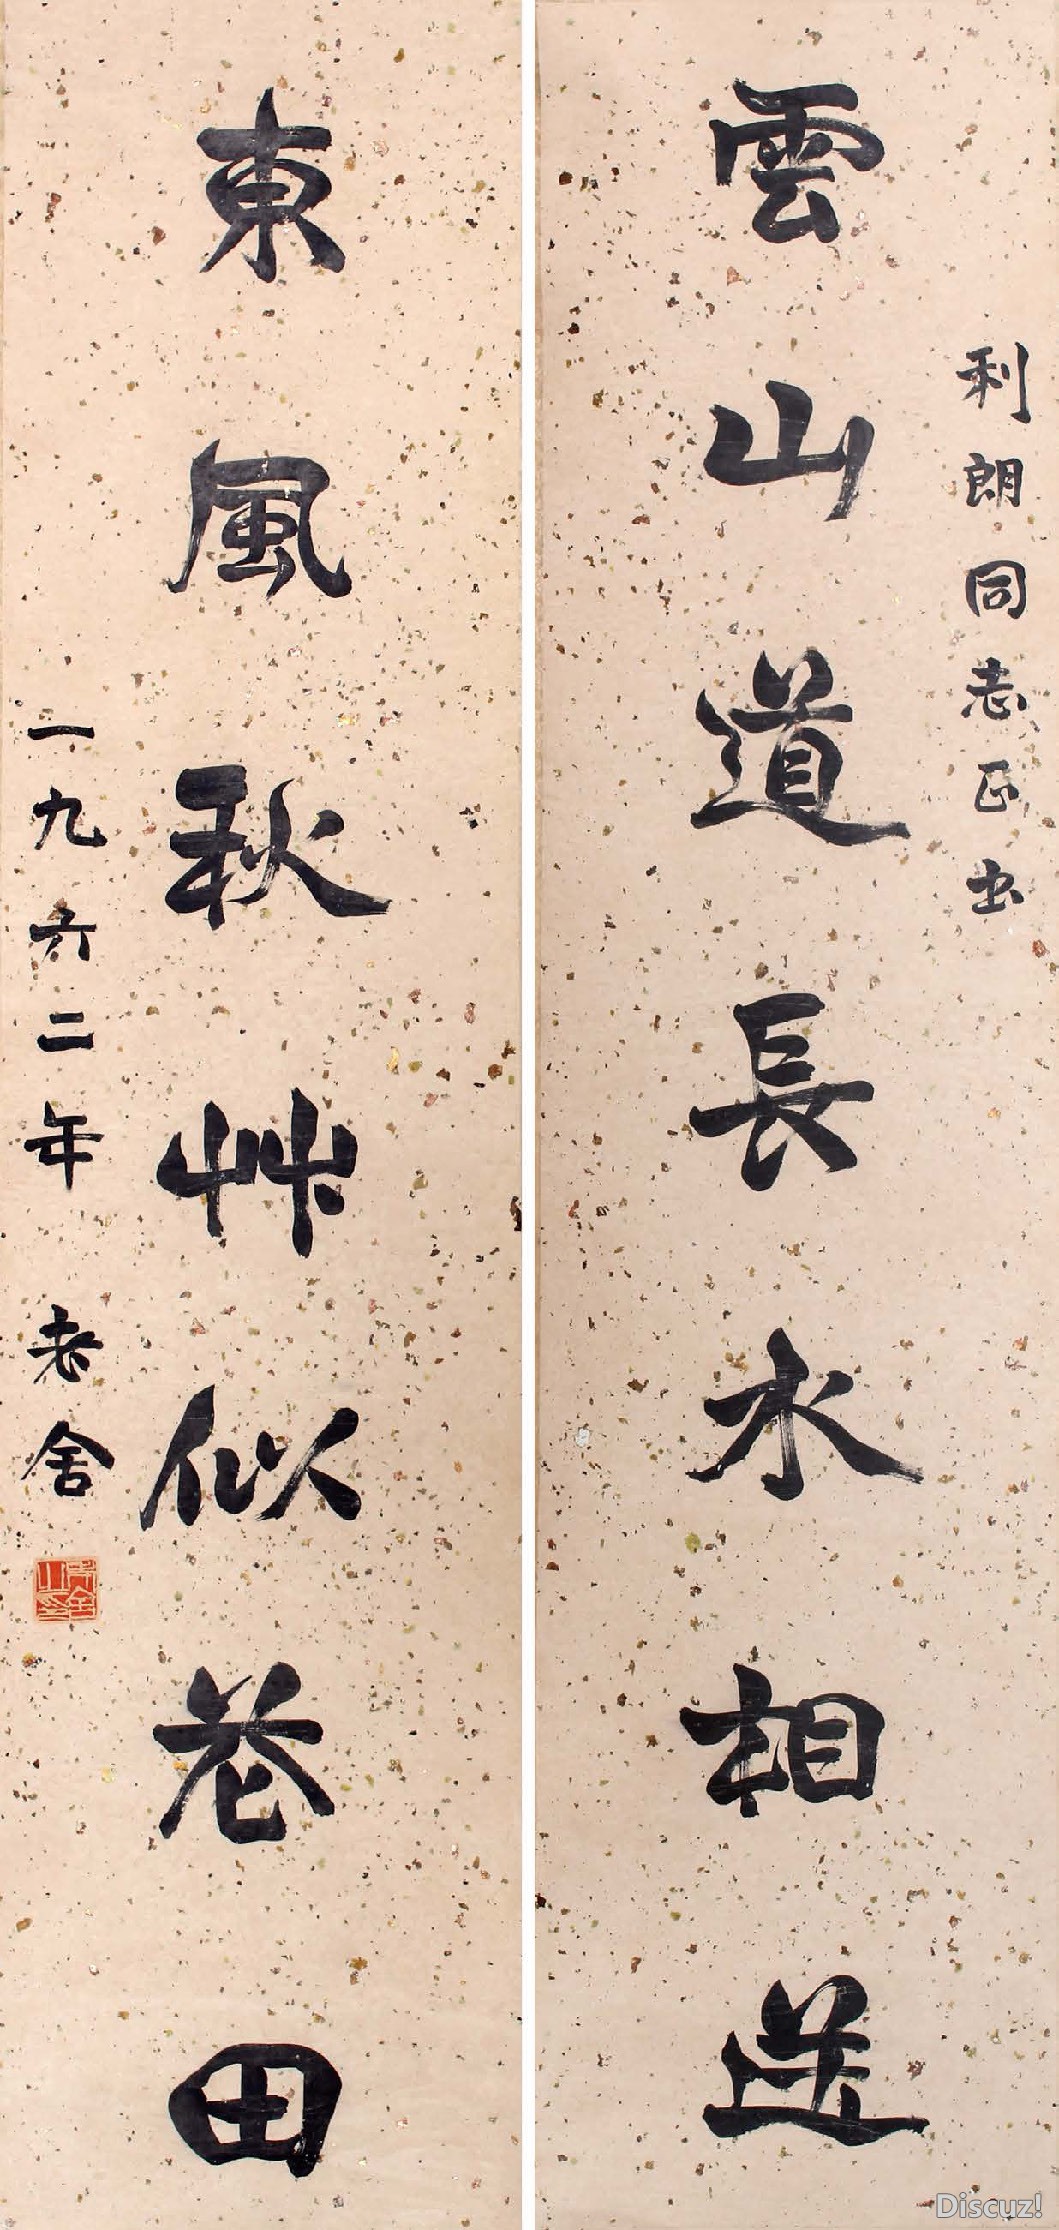 利朗同志正書
雲山道長水相送
東風秋艸似春田
一九六二年 老舍
舍予之印
Discuz!